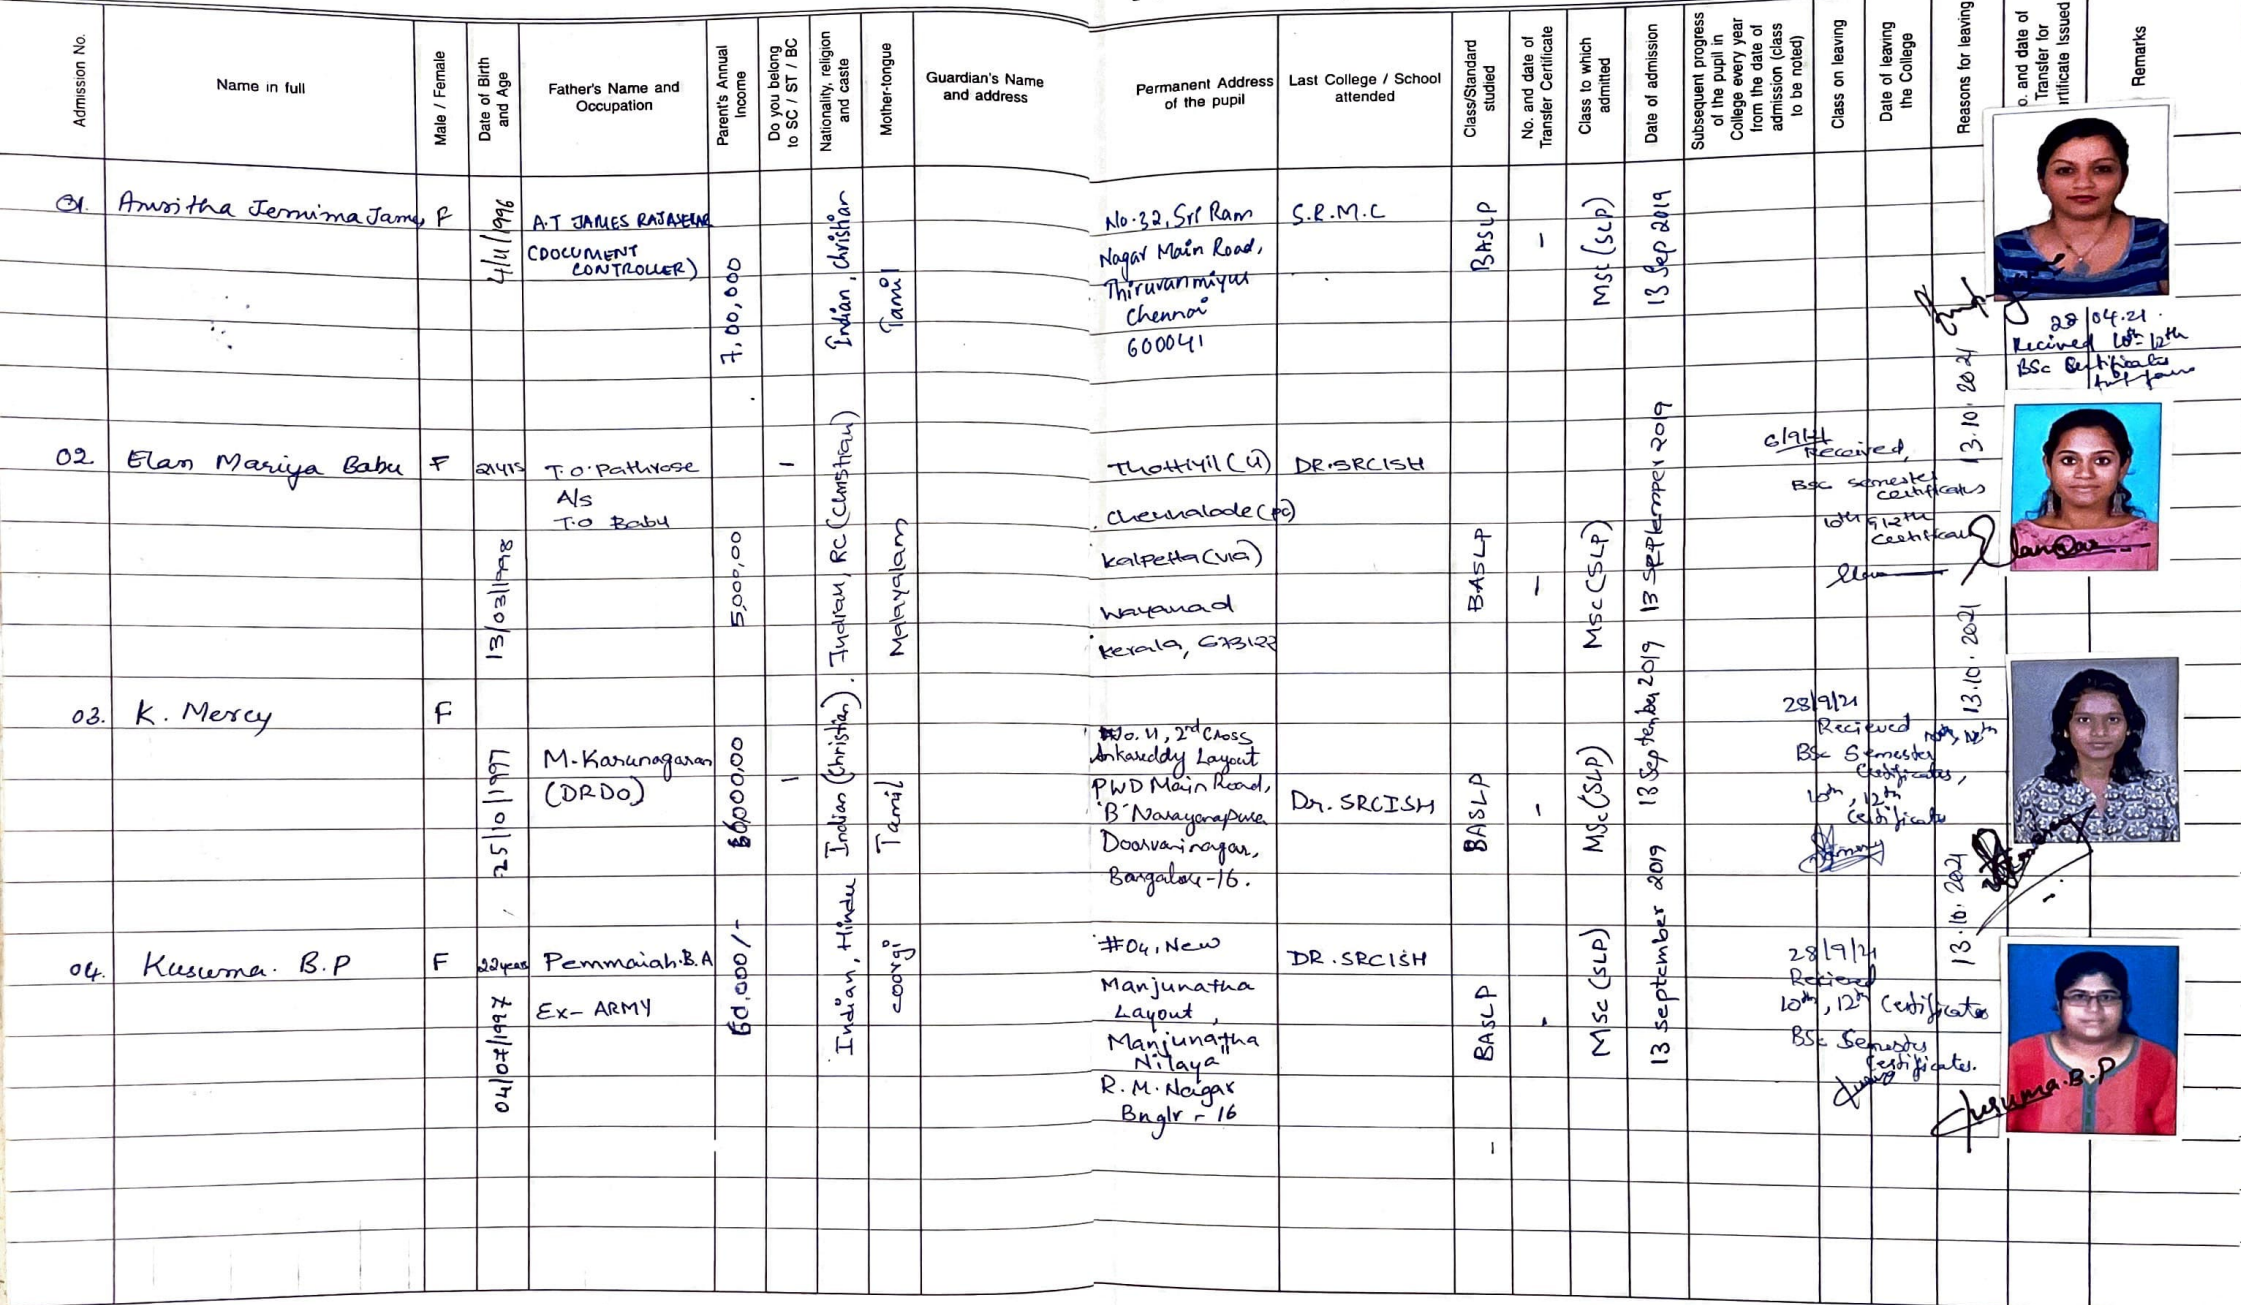 Admission No.
Name in full
Male / Female
Date of Birth
and Age
Father's Name and
Occupation
Parent's Annual
Income
Do you belong
to SC / ST / BC
Nationality, religion
and caste
Mother-tongue
Guardian's Name
and address
Permanent Address
of the pupil
Last College / School
attended
Class/Standard
studied
No. and date of
Transfer Certificate
Class to which
admitted
Date of admission
Subsequent progress
of the pupil in
College every year
from the date of
admission (class
to be noted)
Class on leaving
Date of leaving
the College
Reasons for leaving
o. and date of
Transfer for
ertificate Issued
Remarks
01.
Jemima James
F
4/11/1996
A.T JAMES
(DOCUMENT
CONTROLLER)
7,00,000
Indian, Christian
Tamil
No.32, Sri Ram
Nagar Main Road,
Thiruvanmiyur
Chennai
600041
S.R.M.C
BASLP
-
MSc (SLP)
13 Sep 2019
28/04.21.
Recived 10th 12th
BSc Certificates
02
Elan Mariya Babu
F
13/03/1998
T.O. Pathrose
A/s
T.O Baby
5,000,00
-
Indian, RC (Christian)
Malayalam
Thottiyil (H)
Chennalode (po)
Kalpetta (via)
Wayanad
Kerala, 673122
DR.SRCISH
BASLP
-
MSc (SLP)
13 September 2019
6/9/21
Received,
BSc semester
certificates
10th & 12th
Certificate
13.10.2021
03.
K. Mercy
F
25/10/1997
M. Karunagaran
(DRDO)
-
Indian (Christian).
Tamil
#No.11, 2nd Cross
Ankareddy Layout
PWD Main Road,
'B' Narayanapura
Doorvaninagar,
Bangalore-16.
Dr. SRCISH
BASLP
-
MSc (SLP)
13 September 2019
28/9/21
Recieved
BSc Semester
Certificates,
10th, 12th
Certificate
13.10.2021
04.
Kusuma. B.P
F
22 years
04/07/1997
Pemmaiah.B.A
Ex- ARMY
60,000/-
Indian, Hindu
coorgi
#04, New
Manjunatha
Layout,
Manjunatha
Nilaya"
R.M. Nagar
Bnglr - 16
DR. SRCISH
BASLP
-
MSc (SLP)
13 September 2019
28/9/21
Recieved
10th, 12th Certificates
BSc Semester
Certificates.
13.10.2021
Kusuma.B.P